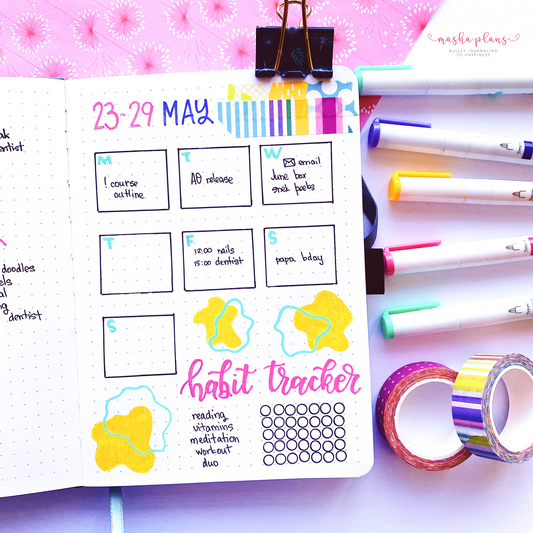 masha plans
BULLET JOURNALING
TO HAPPINESS
dentist
doodles
dentist
23-29 MAY
M
! course
outline
T
release
W
email
June box
T
F
12:00 nails
15:00 dentist
S
papa bday
S
habit tracker
reading
vitamins
meditation
workout
duo